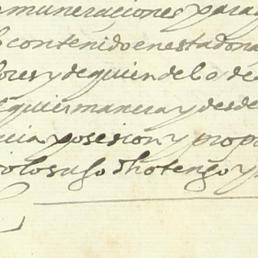 muneraciones para
contenido en esta dona
lores y de quien de lo de
equier manera y desde
cia posesion y propi
olosuso dho tengo y